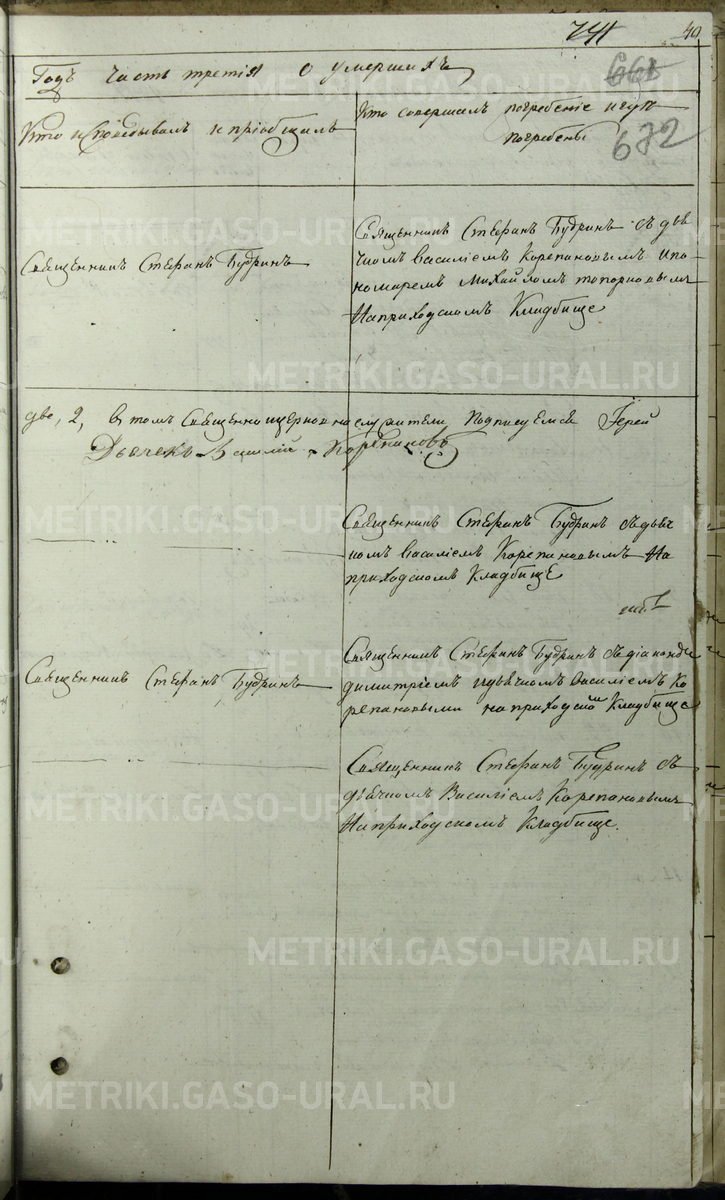 741
40
661
672
Годъ часть третія о умершихъ
Кто исповедывалъ и пріобщалъ
Кто совершалъ погребеніе и гдѣ
погребены
Священникъ Стефанъ Будринъ
Священникъ Стефанъ Будринъ съ дья
чкомъ Василіемъ Корепановымъ и по
номаремъ Михайломъ Топорковымъ
На приходскомъ Кладбище
две, 2, в томъ священноцерковнослужители Подписуемся Іерей
Дьячекъ Василій Корепановъ
Священникъ Стефанъ Будринъ съ дьяч
комъ Василіемъ Корепановымъ На
приходскомъ Кладбище
Священникъ Стефанъ Будринъ
Священникъ Стефанъ Будринъ съ діаконом
димитріемъ и дьячкомъ Василіемъ Ко
репановыми на приходском Кладбище
Священникъ Стефанъ Будринъ съ
дьячкомъ Василіемъ Корепановымъ
На приходскомъ Кладбище.
METRIKI.GASO-URAL.RU